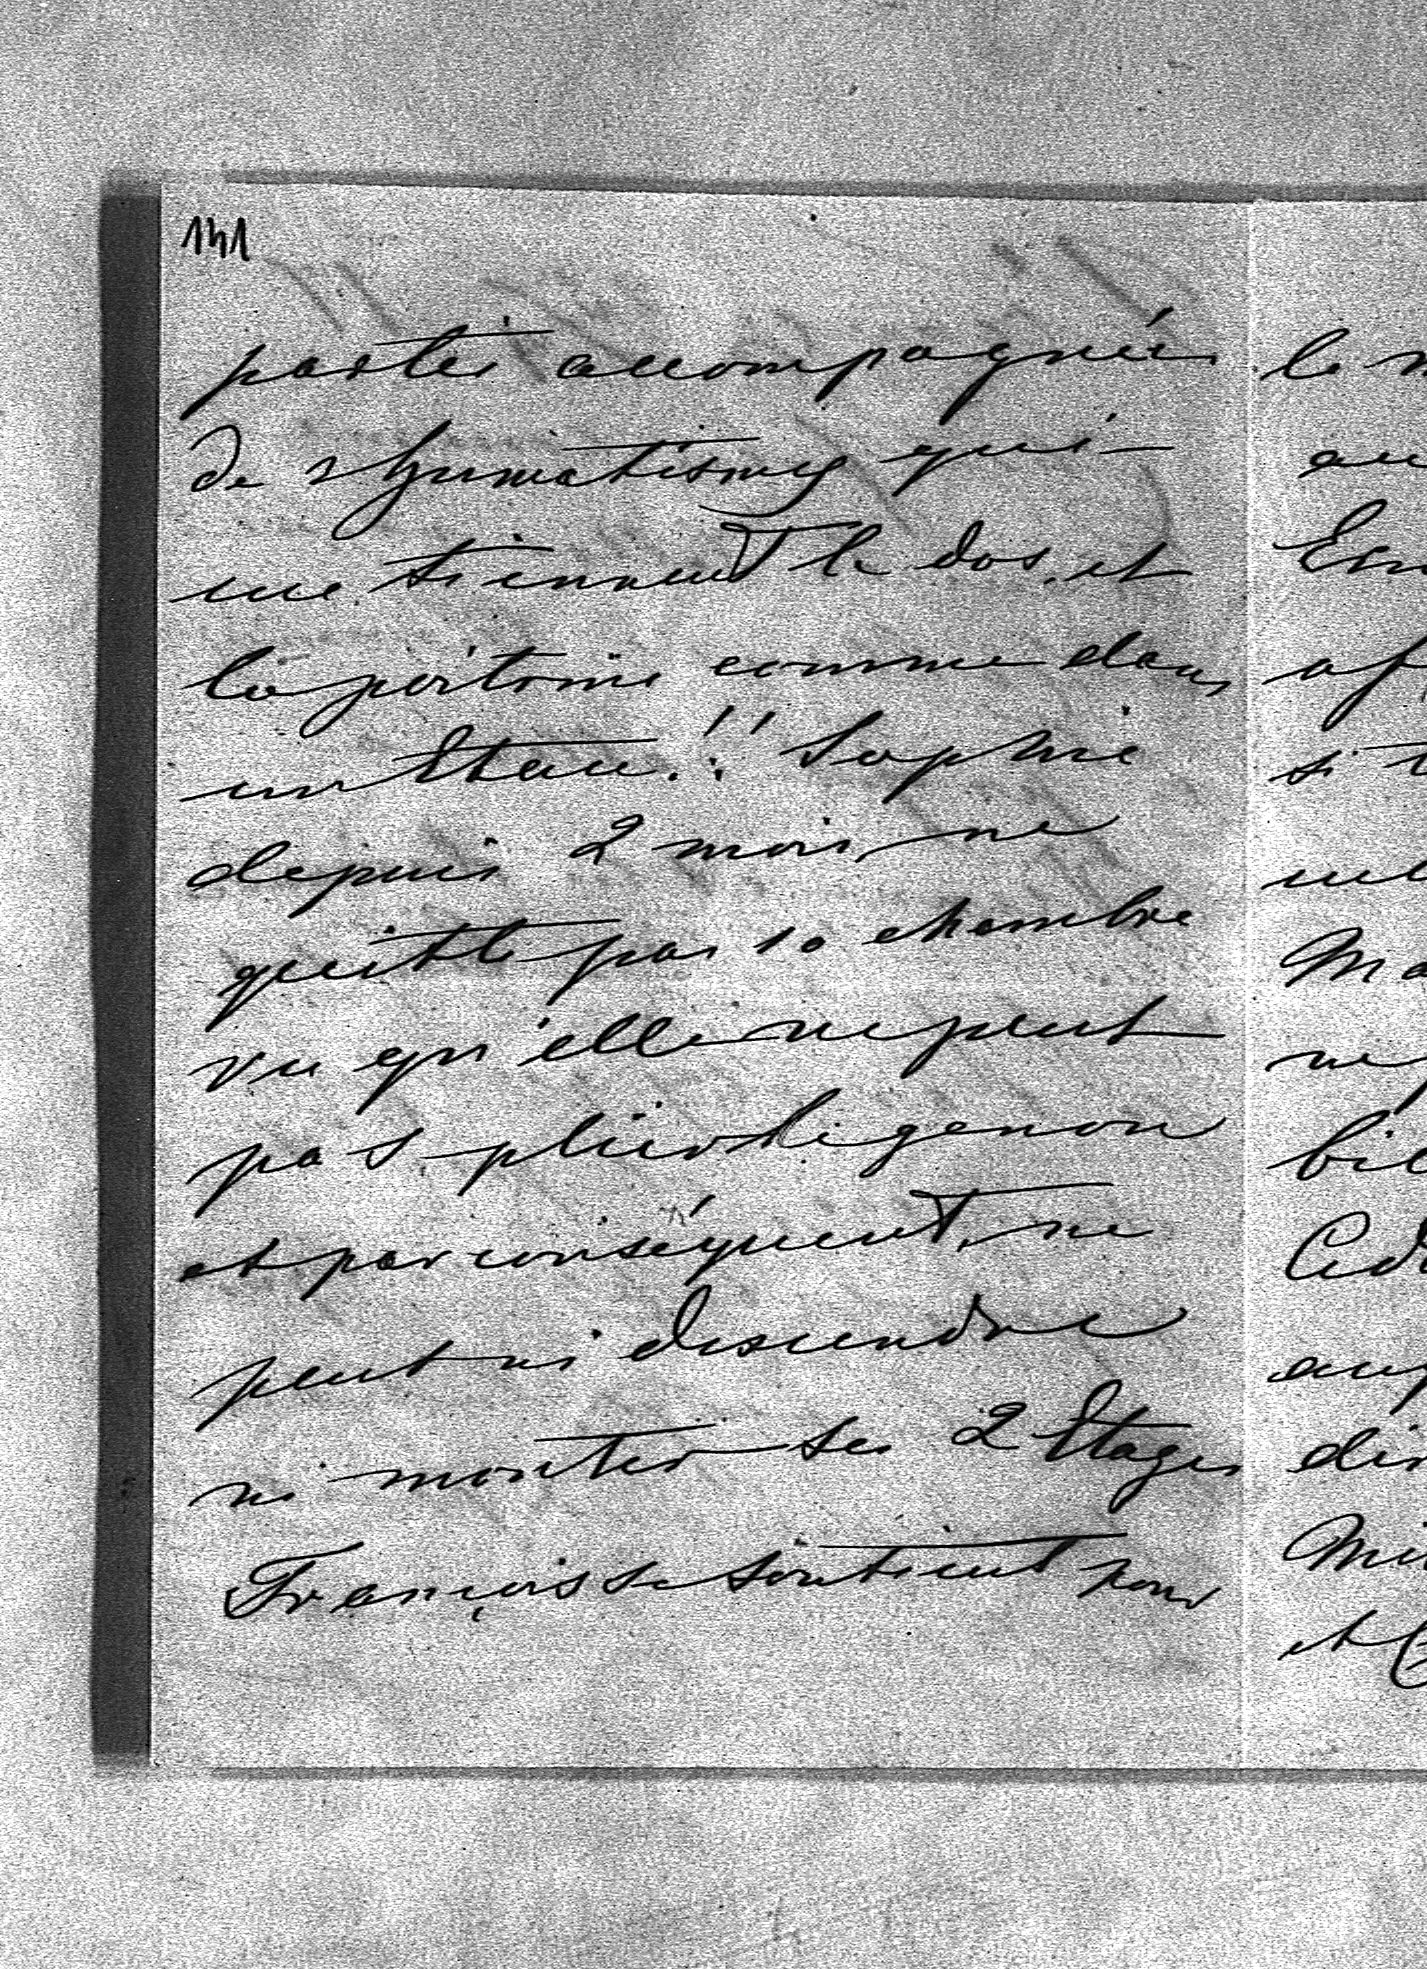 141
parties accompagnées
de rhumatismes qui
me tiennent le dos et
la poitrine comme dans
un Etau!! Sophie
depuis 2 mois ne
quitte pas sa chambre
vu qu'elle ne peut
pas plier le genou
et par conséquent, ne
peut ni descendre
ni monter ses 2 Etages
François se soutient pour